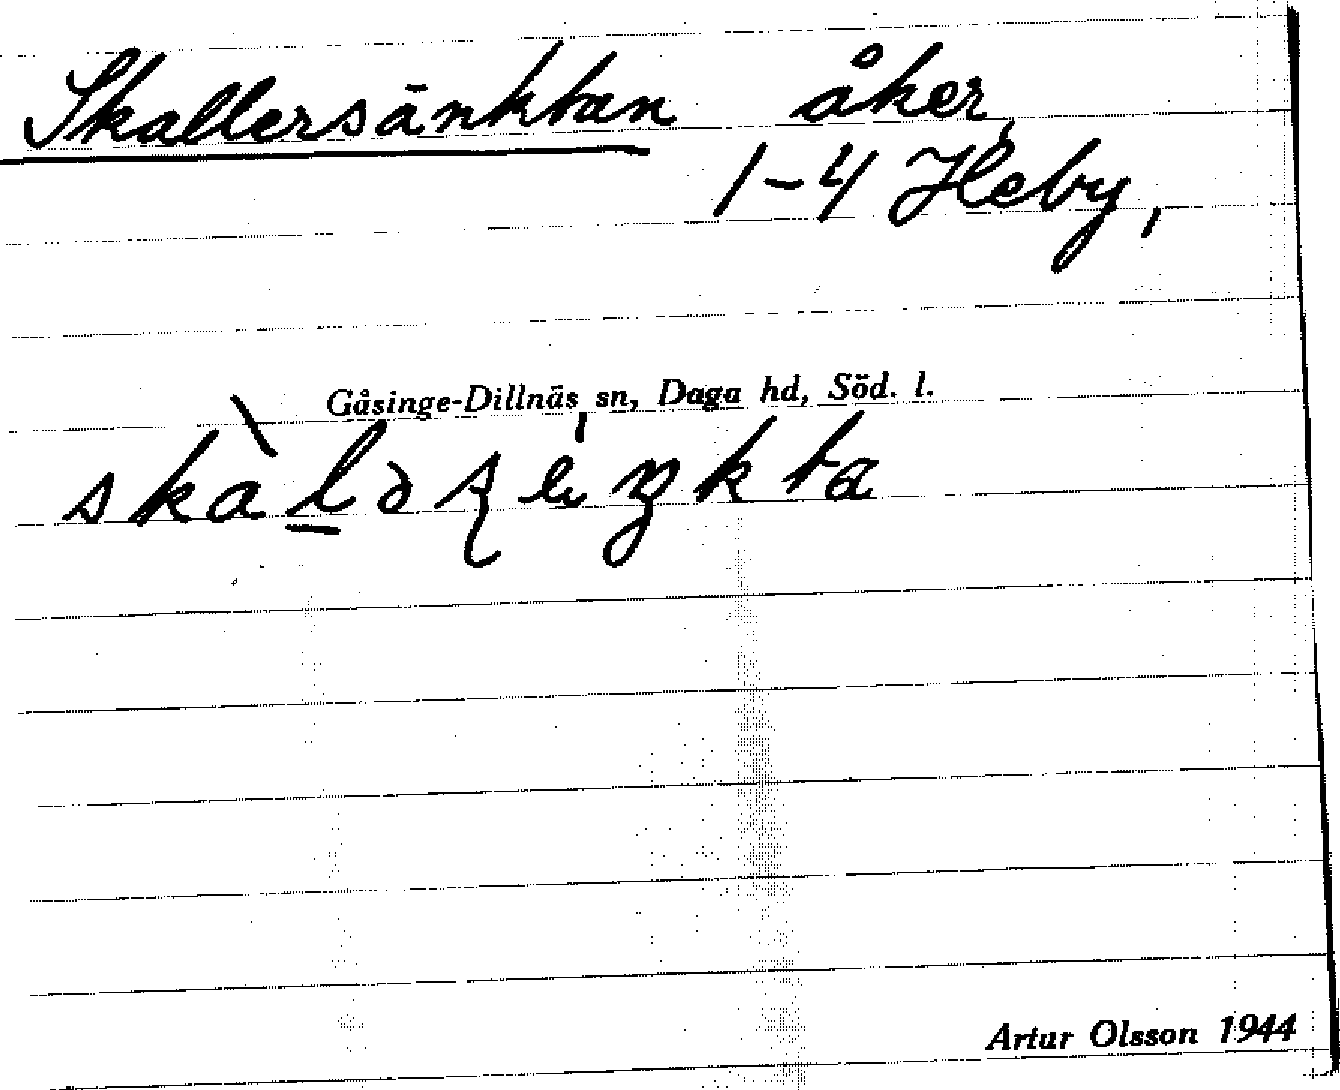 Skallersänktan åker,
1-4 Heby,
Gåsinge-Dillnäs sn, Daga hd, Söd. l.
Artur Olsson 1944